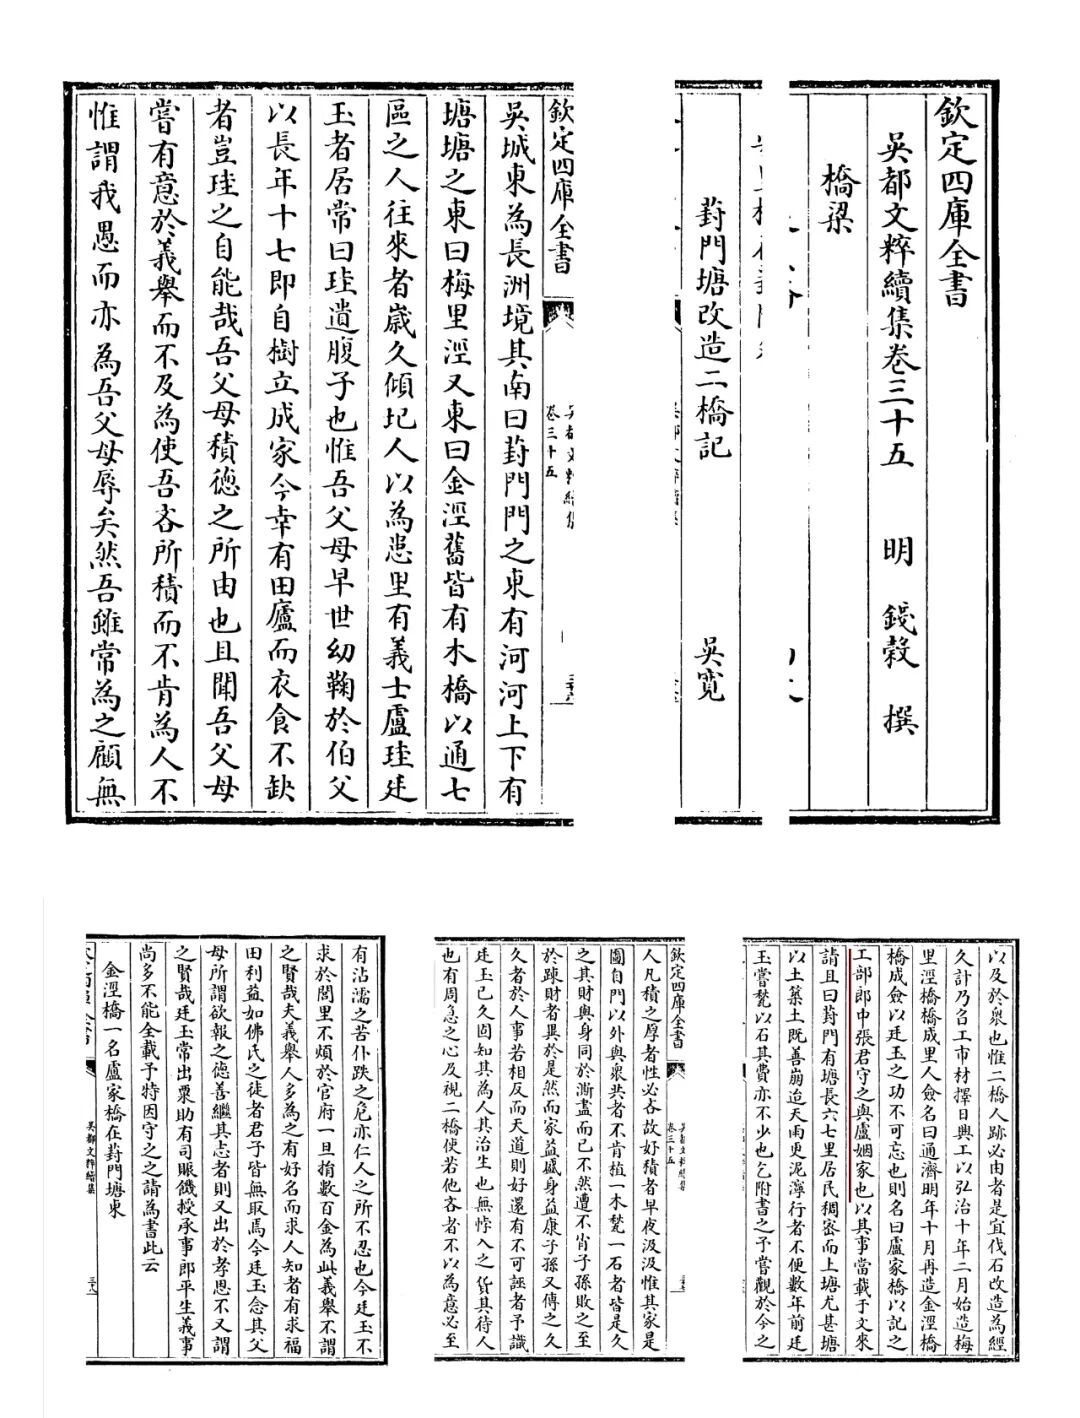 欽定四庫全書
吳都文粹續集卷三十五　明　錢穀　撰
橋梁
葑門塘改造二橋記　吳寬
欽定四庫全書
卷三十五
吳城東為長洲境其南曰葑門門之東有河河上下有
塘塘之東曰梅里涇又東曰金涇舊皆有木橋以通七
區之人往來者嵗久傾圮人以為患里有義士盧珪廷
玉者居常曰珪遺腹子也惟吾父母早世幼鞠於伯父
以長年十七即自樹立成家今幸有田廬而衣食不缺
者豈珪之自能哉吾父母積德之所由也且聞吾父母
嘗有意於義舉而不及為使吾吝所積而不肯為人不
惟謂我愚而亦為吾父母辱矣然吾雖常為之顧無
以及於衆也惟二橋人跡必由者是宜伐石改造為經
久計乃召工市材擇日興工以弘治十年二月始造梅
里涇橋橋成里人僉名曰通濟明年十月再造金涇橋
橋成僉以廷玉之功不可忘也則名曰盧家橋以記之
工部郎中張君守之與盧姻家也以其事當載于文來
請且曰葑門有塘長六七里居民稠密而上塘尤甚塘
以土築土既善崩迨天雨更泥濘行者不便數年前廷
玉嘗甃以石其費亦不少也乞附書之予嘗觀於今之
欽定四庫全書
卷三十五
人凡積之厚者性必吝故好積者早夜汲汲惟其家是
圖自門以外與衆共者不肯植一木甃一石者皆是久
之其財與身同於澌盡而已不然遭不肖子孫敗之至
於踈財者異於是然而家益盛身益康子孫又傳之久
久者於人事若相反而天道則好還有不可誣者予識
廷玉已久固知其為人其治生也無悖入之貨其待人
也有周急之心及視二橋使若他吝者不以為意必至
有沾濡之苦仆跌之危亦仁人之所不忍也今廷玉不
求於閭里不煩於官府一旦捐數百金為此義舉不謂
之賢哉夫義舉人多為之有好名而求人知者有求福
田利益如佛氏之徒者君子皆無取焉今廷玉念其父
母所謂欲報之德善繼其志者則又出於孝思不又謂
之賢哉廷玉常出粟助有司賑饑授承事郎平生義事
尚多不能全載予特因守之之請為書此云
金涇橋一名盧家橋在葑門塘東
吳都文粹續集